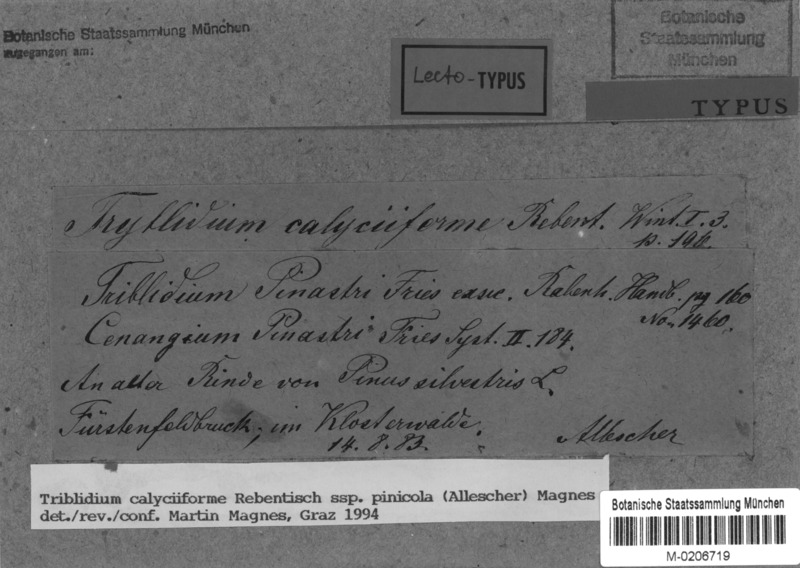 Botanische Staatssammlung München
zugegangen am:
Botanische
Staatssammlung
München
Lecto-TYPUS
TYPUS
Tryblidium calyciiforme Rebent. Wint. I. 3.
p. 196.
Triblidium Pinastri Fries exsic. Rabenh. Handb. pg 160
No. 1460.
Cenangium Pinastri Fries Syst. II. 184.
An alter Rinde von Pinus silvestris L.
Fürstenfeldbruck, im Klosterwalde.
14. 8. 83. Allescher
Triblidium calyciiforme Rebentisch ssp. pinicola (Allescher) Magnes
det./rev./conf. Martin Magnes, Graz 1994
Botanische Staatssammlung München
M-0206719